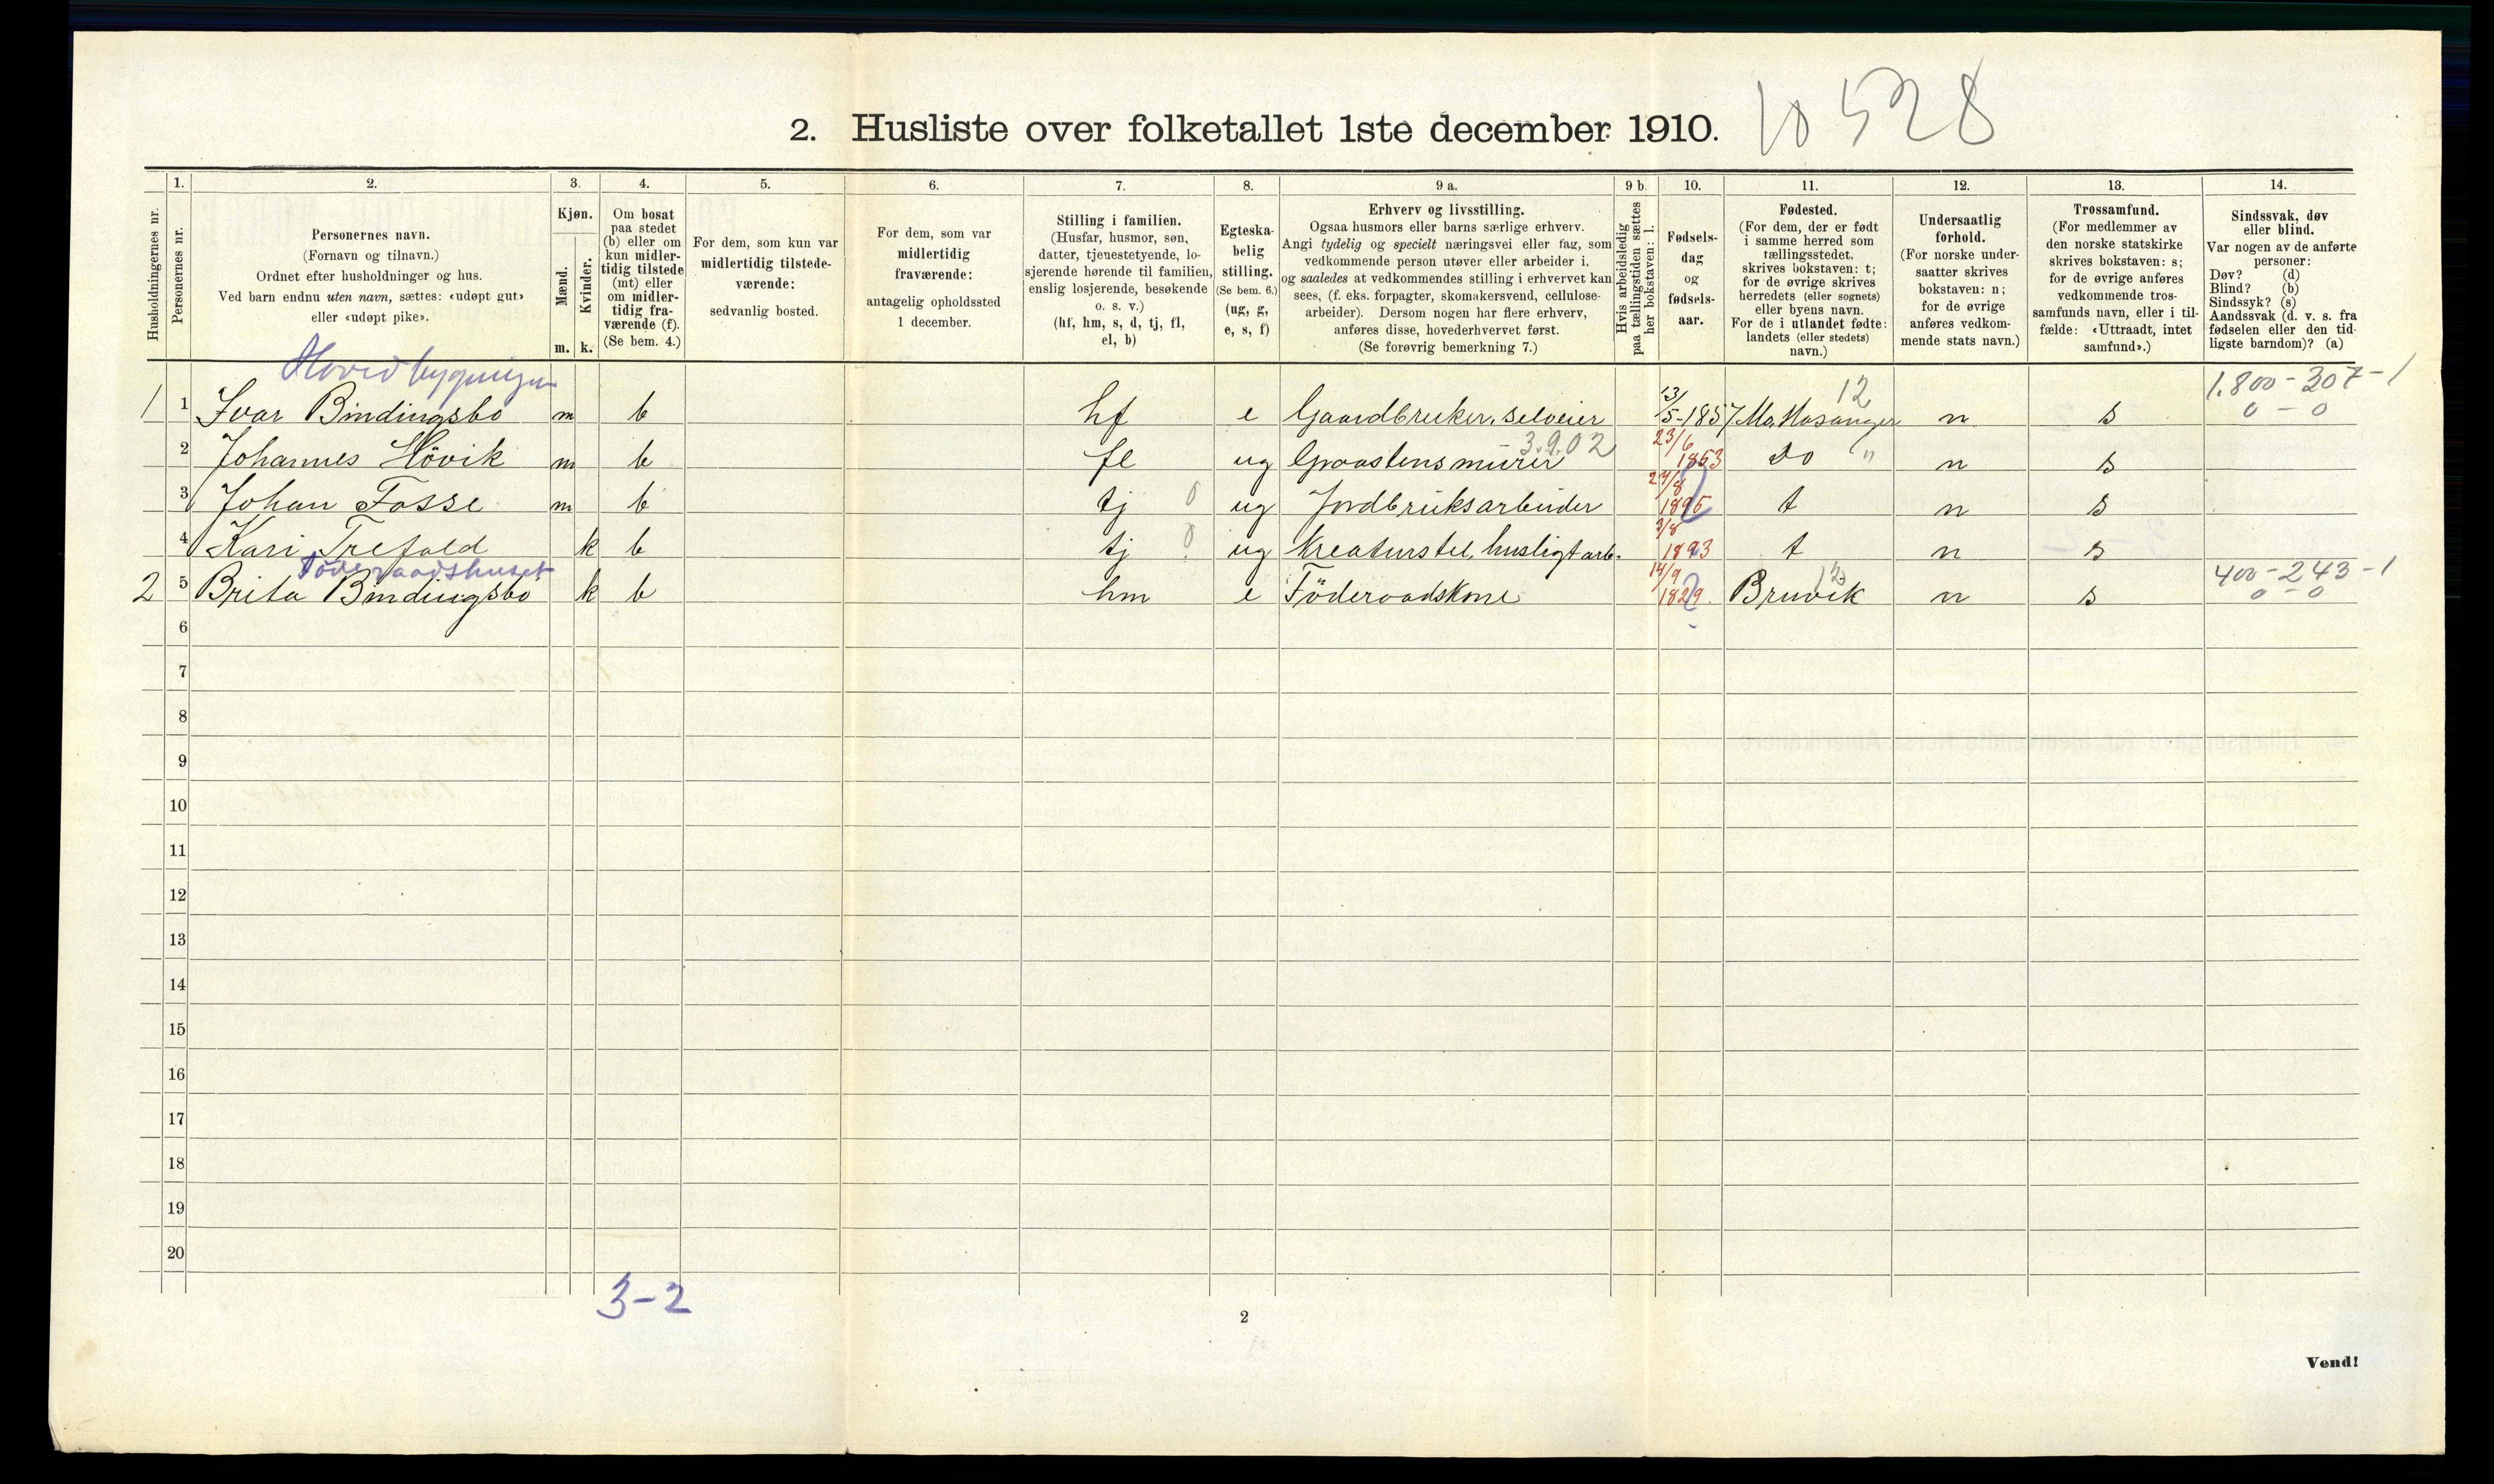 2. Husliste over folketallet 1ste december 1910. 10528
Husholdningernes nr.
1. Personernes nr.
2. Personernes navn.
(Fornavn og tilnavn.)
Ordnet efter husholdninger og hus.
Ved barn endnu uten navn, sættes: «udøpt gut»
eller «udøpt pike».
3. Kjøn.
Mænd. m.
Kvinder. k.
4. Om bosat
paa stedet
(b) eller om
kun midler-
tidig tilstede
(mt) eller
om midler-
tidig fra-
værende (f).
(Se bem. 4.)
5. For dem, som kun var
midlertidig tilstede-
værende:
sedvanlig bosted.
6. For dem, som var
midlertidig
fraværende:
antagelig opholdssted
1 december.
7. Stilling i familien.
(Husfar, husmor, søn,
datter, tjenestetyende, lo-
sjerende hørende til familien,
enslig losjerende, besøkende
o. s. v.)
(hf, hm, s, d, tj, fl,
el, b)
8. Egteska-
belig
stilling.
(Se bem. 6.)
(ug, g,
e, s, f)
9 a. Erhverv og livsstilling.
Ogsaa husmors eller barns særlige erhverv.
Angi tydelig og specielt næringsvei eller fag, som
vedkommende person utøver eller arbeider i,
og saaledes at vedkommendes stilling i erhvervet kan
sees, (f. eks. forpagter, skomakersvend, cellulose-
arbeider). Dersom nogen har flere erhverv,
anføres disse, hovederhvervet først.
(Se forøvrig bemerkning 7.)
9 b. Hvis arbeidsledig
paa tællingstiden sættes
her bokstaven: l.
10. Fødsels-
dag
og
fødsels-
aar.
11. Fødested.
(For dem, der er født
i samme herred som
tællingsstedet,
skrives bokstaven: t;
for de øvrige skrives
herredets (eller sognets)
eller byens navn.
For de i utlandet fødte:
landets (eller stedets)
navn.)
12. Undersaatlig
forhold.
(For norske under-
saatter skrives
bokstaven: n;
for de øvrige
anføres vedkom-
mende stats navn.)
13. Trossamfund.
(For medlemmer av
den norske statskirke
skrives bokstaven: s;
for de øvrige anføres
vedkommende tros-
samfunds navn, eller i til-
fælde: «Uttraadt, intet
samfund».)
14. Sindssvak, døv
eller blind.
Var nogen av de anførte
personer:
Døv? (d)
Blind? (b)
Sindssyk? (s)
Aandssvak (d. v. s. fra
fødselen eller den tid-
ligste barndom)? (a)
Hovedbygningen 12 1.800-307-1
1 1 Ivar Bindingsbo m b hf e Gaardbruker, selveier 13/5-1857 Mo, Hosanger n s 0-0
2 Johannes Hövik m b fl ug Graastensmurer 3.9.02 23/6 1853 do " n s
3 Johan Fosse m b tj 0 ug Jordbruksarbeider 24/8 1895 t n s
4 Kari Trefald k b tj 0 ug Kreaturstel, husligt arb. 3/8 1893 t n s
Föderaadshuset 12 400-243-1
2 5 Brita Bindingsbo k b hm e Föderaadskone 14/9 1829. Bruvik n s 0-0
6
7
8
9
10
11
12
13
14
15
16
17
18
19
20
3-2
2
Vend!